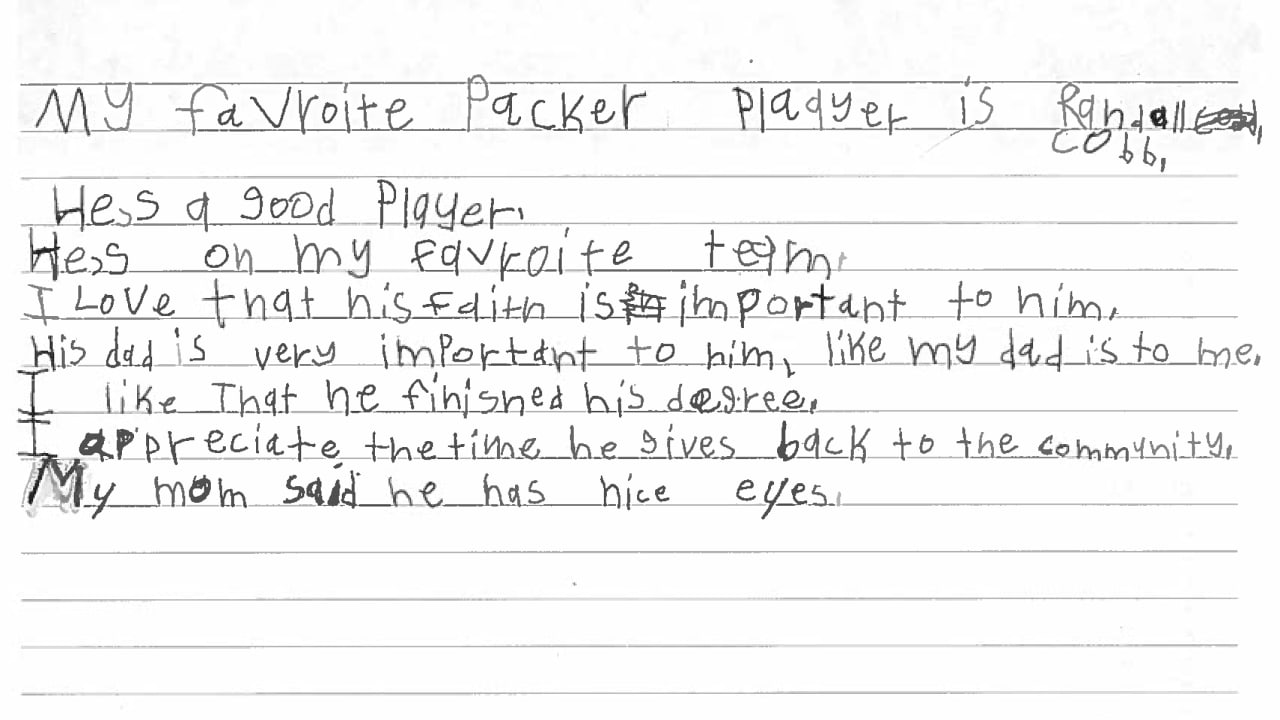 My favroite Packer Plaqyer is Randall
Cobb.
He,s a good Player.
He,s on my favroite team.
I Love that his faith is important to him.
His dad is very important to him, like my dad is to me.
I like That he finished his degree.
I appreciate the time he gives back to the community.
My mom said he has nice eyes.